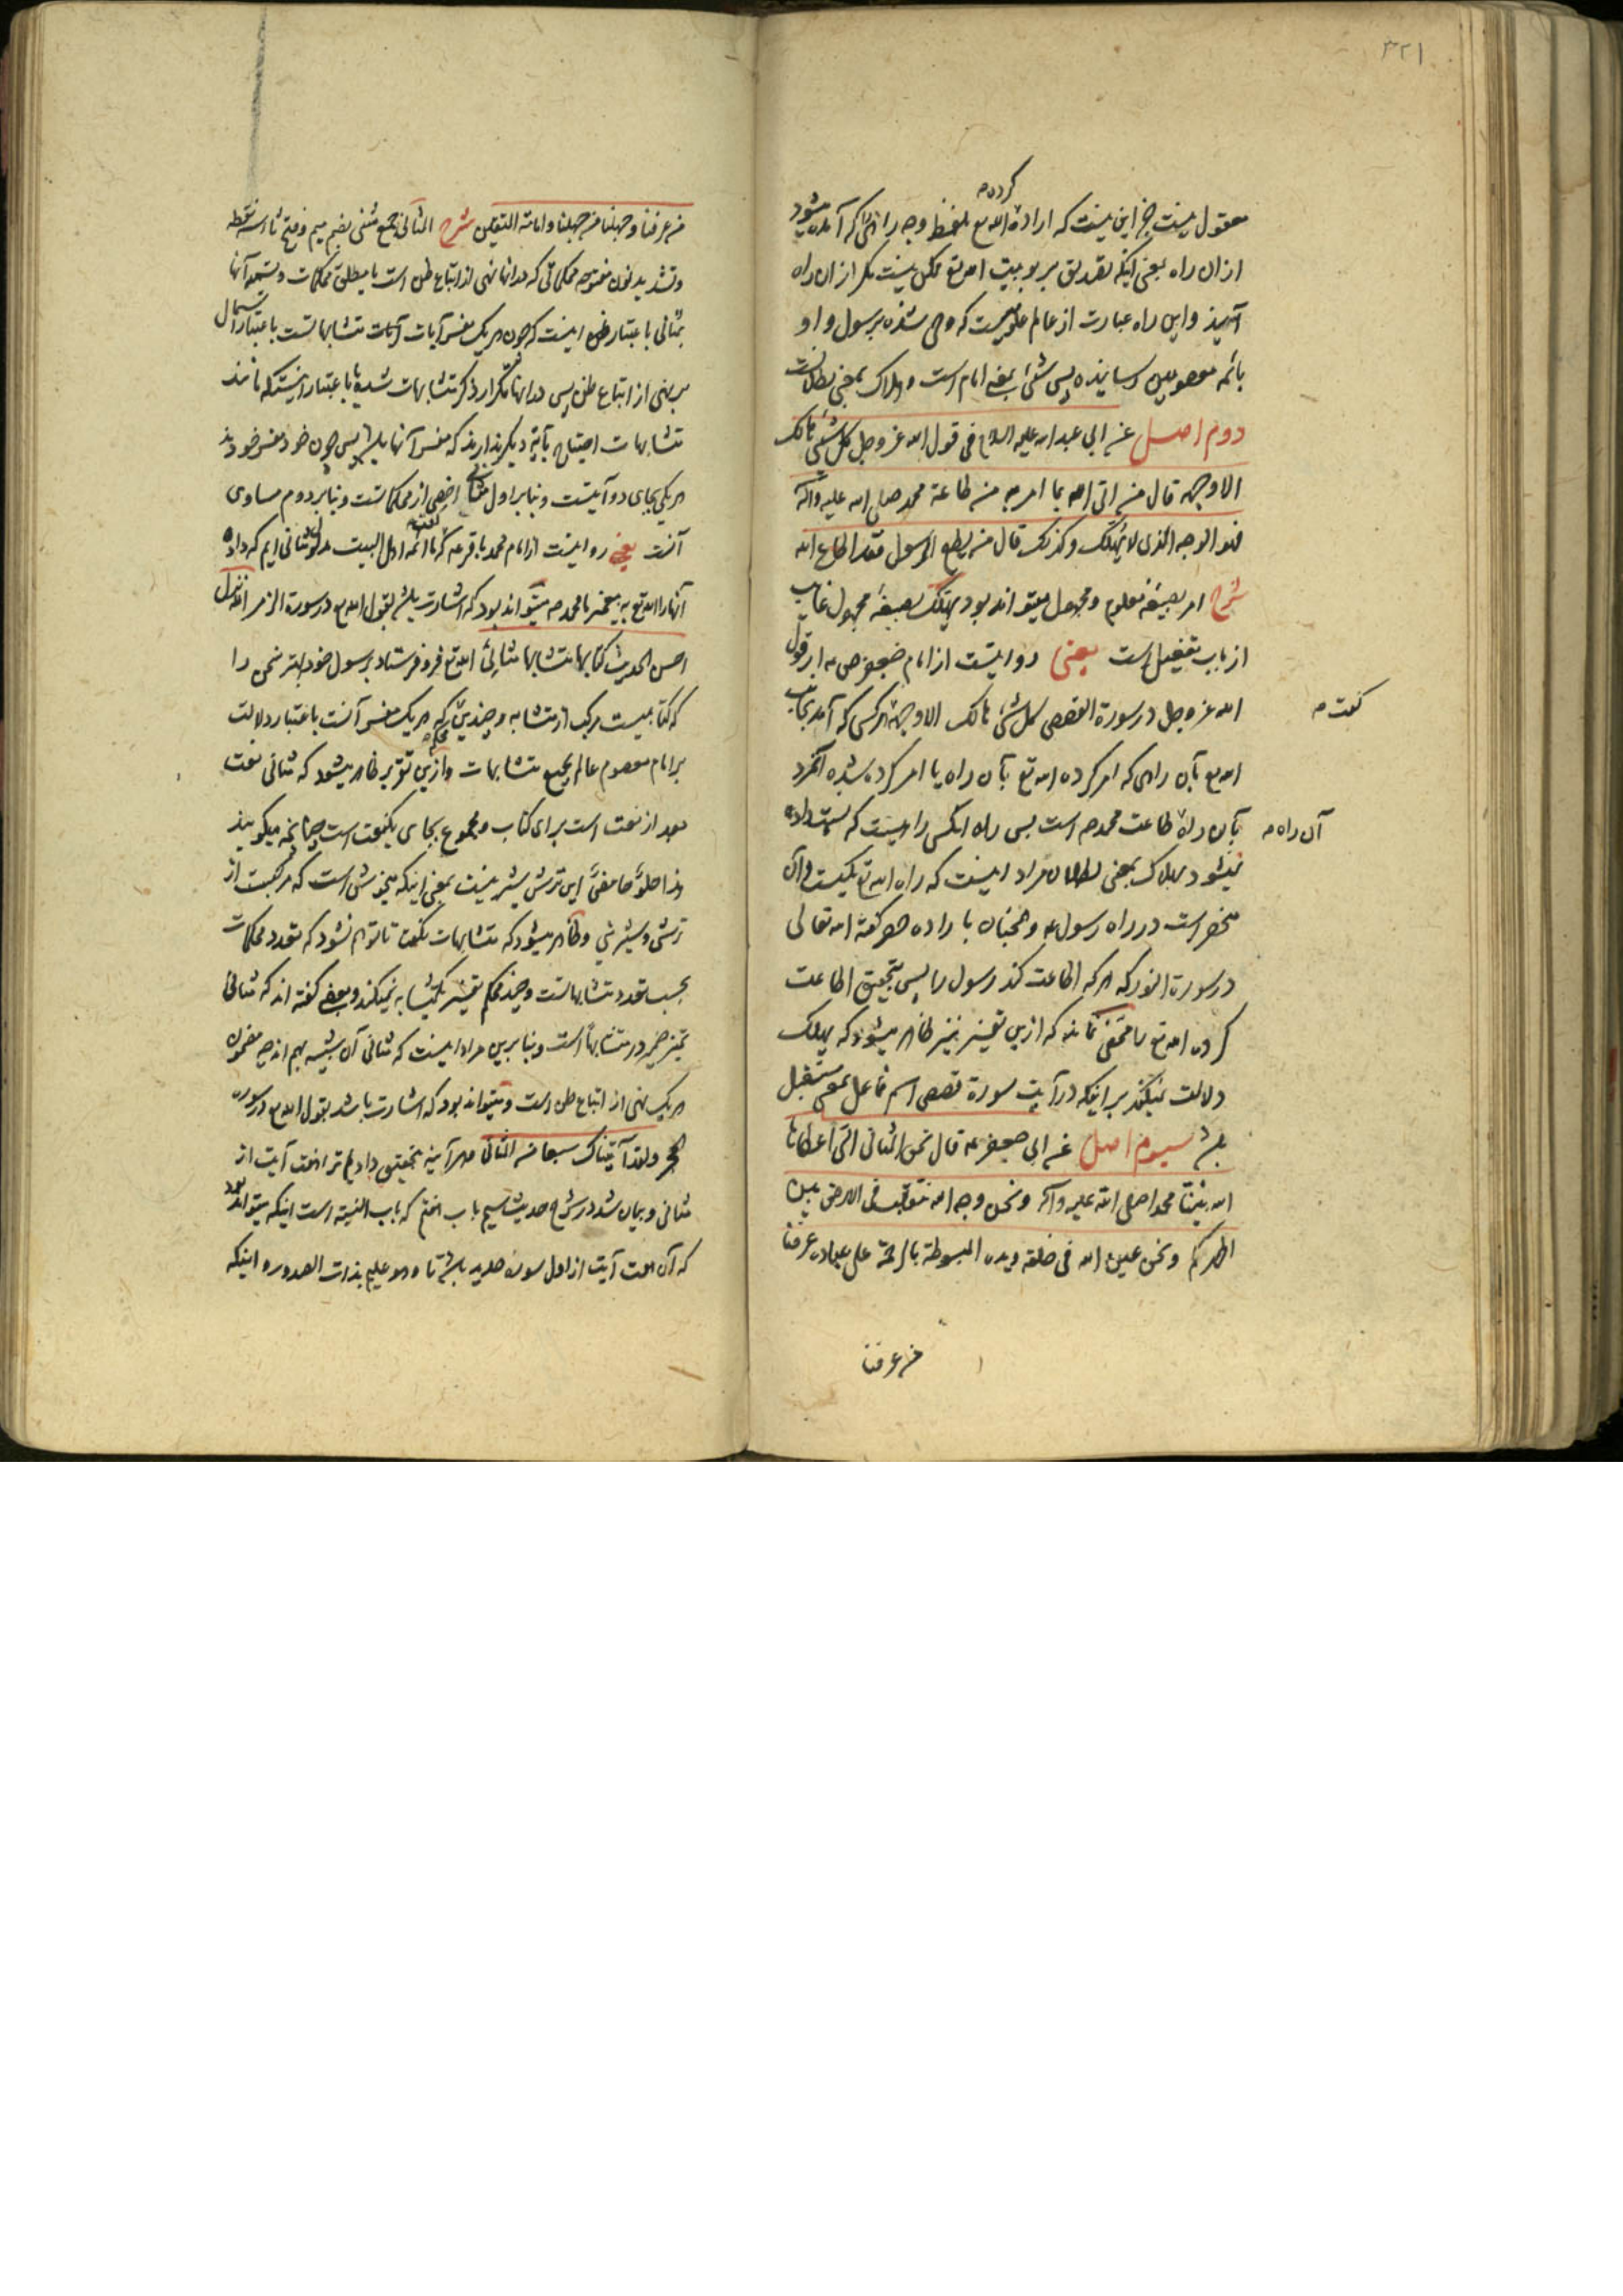 ۳۲۱
معقول نیست جز این نیست که اراده کرده الله تع بلفظ وجه راهی را که آمده میشود
از ان راه یعنی اینکه تصدیق بربوبیت الله تع ممکن نیست مکر از ان راه
و این راه عبارت از عالم که وحی شده برسول و او
بائمه معصومین رسانیده پس شیء بمعنی امام است و هلاک بمعنی بطلانست
دوم اصل عن ابی عبد الله علیه السلام فی قول الله عز وجل کل شیء هالک
الا وجهه قال من اتی الله بما امر به من طاعة محمد صلی الله علیه وآله
فهو الوجه الذی لا یهلک وکذلک قال من یطع الرسول فقد اطاع الله
شرح امر بصیغه معلوم و مجهول میتواند بود یهلک بصیغه مجهول غایب
از باب تفعیل است یعنی روایتست از امام جعفر ص ع در قول
الله عز وجل در سورة القصص کل شیء هالک الا وجهه کفت هر کسی که آمد بجانب
الله تع بآن راهی که امر کرده الله تع بآن راه یا امر کرده شده آنمرد
بآن راه آن راه طاعت محمد ص است پس راه انکس راهیست که نسبت داده
نمیشود بهلاک بمعنی بطلان مراد اینست که راه الله تع یکیست و آن
منحصر است در راه رسول ع و همچنان باراده حصر کفته الله تعالی
در سورة النور که هر که اطاعت کند رسول را پس بتحقیق اطاعت
کرده الله تع را مخفی نماند که ازین تفسیر نیز ظاهر میشود که یهلک
دلالت نمیکند بر اینکه در آیت سورة قصص اسم فاعل بمعنی مستقبل
باشد سیوم اصل عن ابی جعفر ع قال نحن المثانی التی اعطاها
الله نبینا محمدا صلی الله علیه وآله ونحن وجه الله نتقلب فی الارض بین
اظهرکم ونحن عین الله فی خلقه ویده المبسوطة بالرحمة علی عباده عرفنا
من عرفنا
من عرفنا وجهلنا من جهلنا وامامة المتقین شرح المثانی جمع مثنی بضم میم و فتح ثاء سه نقطه
و تشدید نون مفتوحه محکماتی که در انها نهی از اتباع ظن است یا مطلق محکمات و تسمیه آنها
بمثانی باعتبار اینست که چون هر یک مفسر آیات متشابهاتست باعتبار اشتمال
بر نهی از اتباع ظن پس در انها تکرار ذکر متشابهات شده یا باعتبار اینست که مانند
متشابهات احتیاج بآیة دیکر ندارند که مفسر آنها باشد پس چون خود مفسر خودند
هر یکی بجای دو آیتست و بنابر اول مثانی اخص از محکماتست و بنابر دوم مساوی
آنست یعنی روایتست از امام محمد باقر ع که کفت ما ائمه اهل البیت مدلول مثانی ایم که داده
آنها را الله تع به پیغمبر ما محمد ص میتواند بود که اشارت باشد بقول الله تع در سورة الزمر الله نزل
احسن الحدیث کتابا متشابها مثانی الله تع فرو فرستاد برسول خود بهتر سخن را
که کتابیست مرکب از متشابه و چندین محکم که هر یک مفسر آنست باعتبار دلالت
بر امام معصوم عالم بجمیع متشابهات و ازین تقریر ظاهر میشود که مثانی نعت
بعد از نعت است برای کتاب و مجموع بجای یکنعت است چنانچه میکویند
هذا حلو حامض این ترش شیرینست بمعنی اینکه میخوشی است که مرکبست از
ترشی و شیرینی و ظاهر میشود که متشابهات نکفت تا توهم نشود که تعدد محکمات
بحسب تعدد متشابهاتست و چند محکم تفسیر یکمتشابه نمیکند و بعضی کفته اند که مثانی
تمیز ضمیر در متشابها است و بنابرین مراد اینست که مثانی آن شبیه بهم اند چه مضمون
هر یک نهی از اتباع ظن است و میتواند بود که اشارت باشد بقول الله تع در سوره
الحجر ولقد آتیناک سبعا من المثانی هر آینه بتحقیق دادیم ترا هفت آیت از
مثانی و بیان شد در شرح حدیث سیم باب اختم که باب النسبة است اینکه میتواند بود
که آن هفت آیت از اول سوره حدید باشد تا وهو علیم بذات الصدور و اینکه